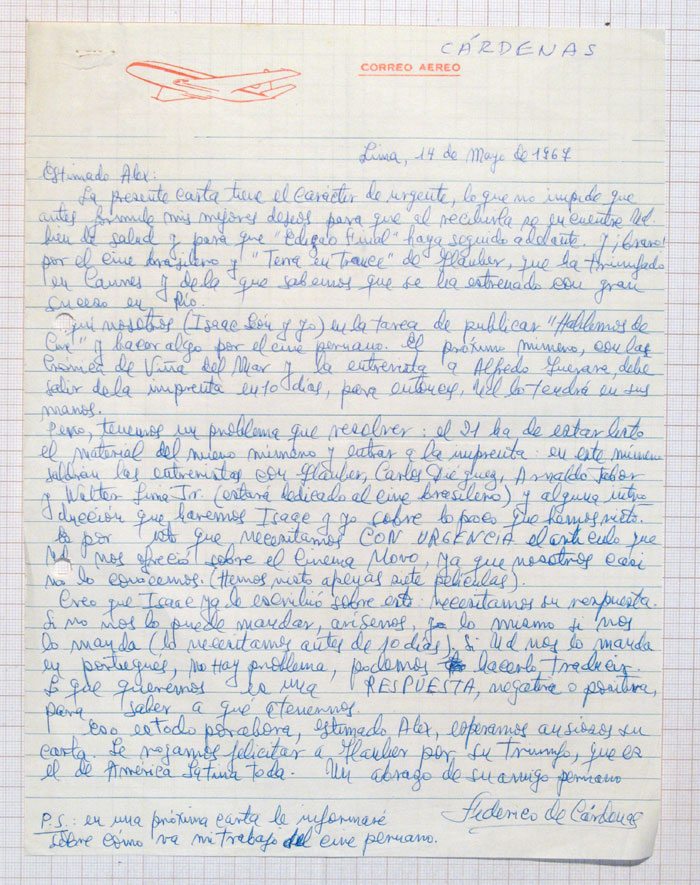 CÁRDENAS
CORREO AEREO
Lima, 14 de Mayo de 1967
Estimado Alex:
La presente carta tiene el carácter de urgente, lo que no impide que
antes formule mis mejores deseos para que al recibirla se encuentre Ud
bien de salud y para que "Ediçao Final" haya seguido adelante. Y ¡Bravo!
por el cine brasileno y "Terra en Trance" de Glauber, que ha triunfado
en Cannes y de la que sabemos que se ha estrenado con gran
suceso en Río.
nosotros (Isaac León y yo) en la tarea de publicar "Hablemos de
Cine" y hacer algo por el cine peruano. El próximo número, con las
Crónica de Viña del Mar y la entrevista a Alfredo Guevara, debe
salir de la imprenta en 10 días, para entonces, Ud lo tendrá en sus
manos.
Pero, tenemos un problema que resolver: el 21 ha de estar listo
el material del nuevo número y entrar a la imprenta: en este número
saldrán las entrevistas con Glauber, Carlos Diegues, Arnaldo Jabor
y Walter Lima Jr. (estará dedicado al cine brasileno) y alguna intro
ducción que haremos Isaac y yo sobre lo poco que hemos visto.
Es por esto que necesitamos CON URGENCIA el artículo que
Ud nos ofreció sobre el Cinema Novo, ya que nosotros casi
no lo conocemos. (Hemos visto apenas siete películas).
Creo que Isaac ya le escribió sobre esto: necesitamos su respuesta.
Si no nos lo puede mandar, avísenos, lo mismo si nos
lo manda (lo necesitamos antes de 10 días). Si Ud nos lo manda
en portugués, no hay problema, podemos hacerlo traducir.
Lo que queremos es una RESPUESTA, negativa o positiva,
para saber a qué atenernos.
Eso es todo por ahora, estimado Alex, esperamos ansiosos su
carta. Le rogamos felicitar a Glauber por su triunfo, que es
el de América Latina toda. Un abrazo de su amigo peruano
Federico de Cárdenas
P.S.: en una próxima carta le informaré
sobre cómo va mi trabajo del cine peruano.